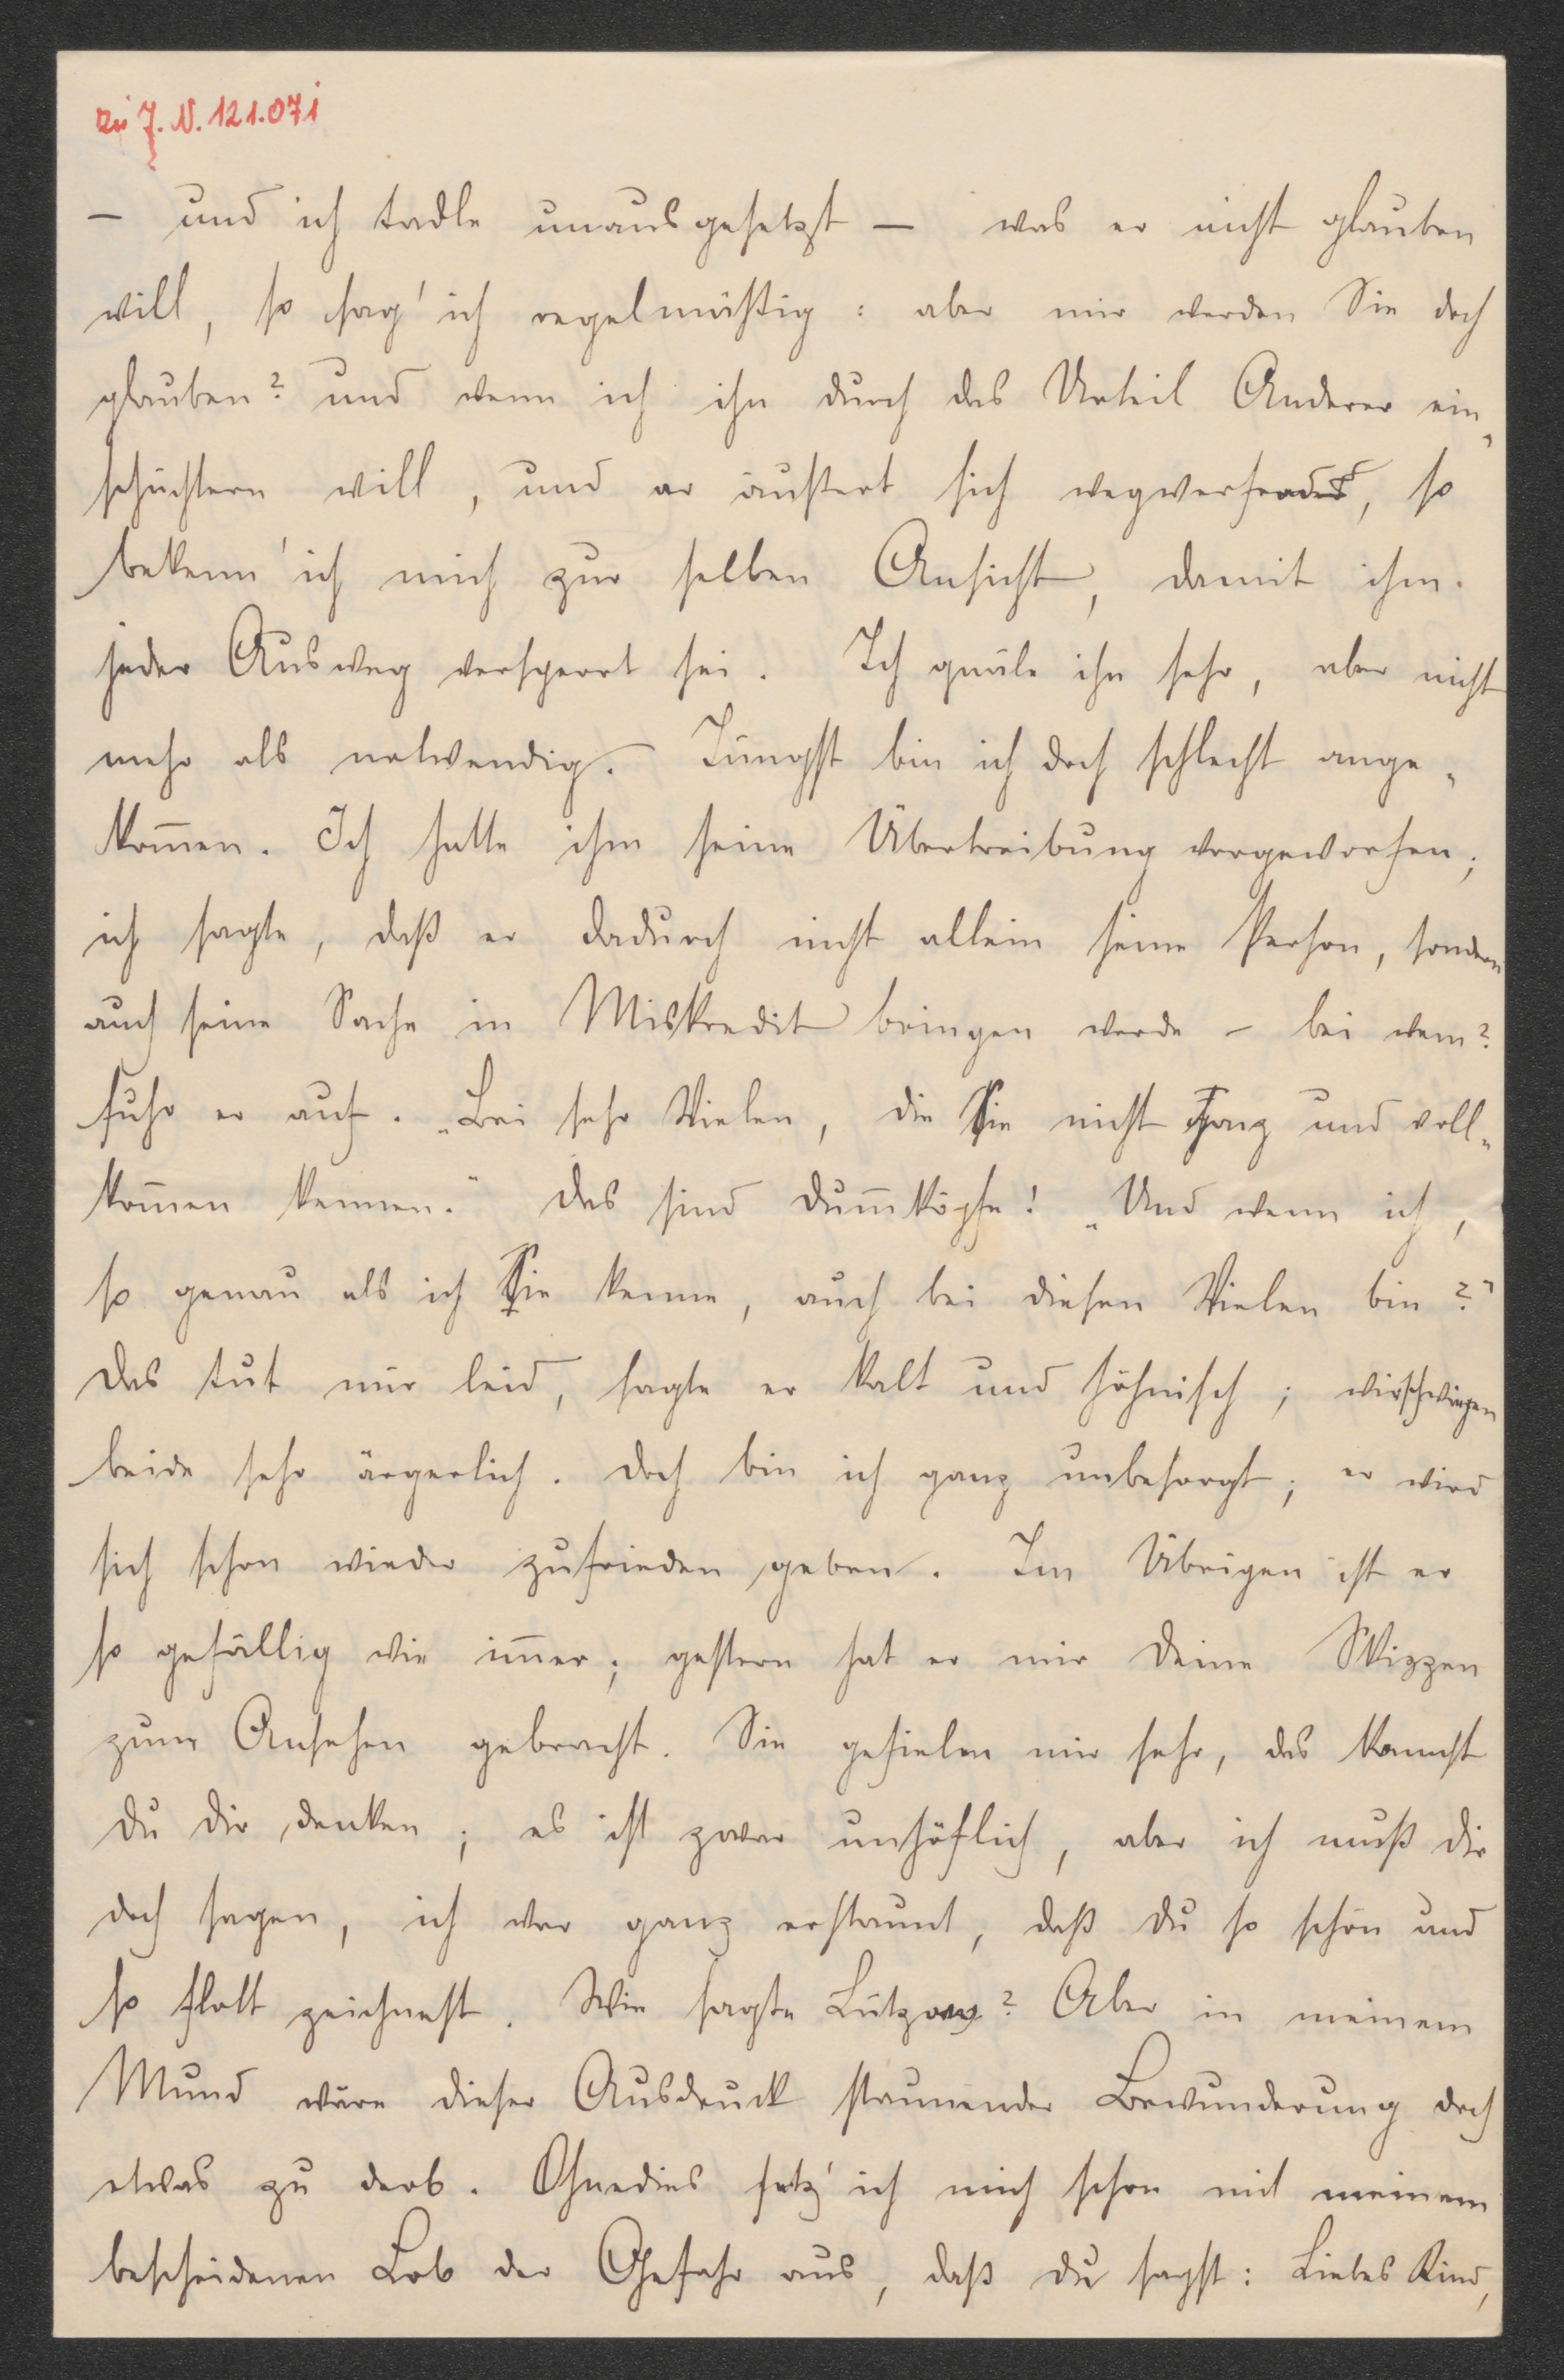 zu J. N. 121.071
— und ich tadle unausgesetzt — was er nicht glauben
will, so sag' ich regelmäßig: aber mir werden Sie doch
glauben? und wenn ich ihn durch das Urteil Anderer ein„
schüchtern will, und er äußert sich wegwerfend, so
bekenn' ich mich zur selben Ansicht, damit ihm
jeder Ausweg versperrt sei. Ich quäle ihn sehr, aber nicht
mehr als notwendig. Jüngst bin ich doch schlecht ange„
kom̅en. Ich hatte ihm seine Übertreibung vorgeworfen;
ich sagte, daß er dadurch nicht allein seine Person, sondern
auch seine Sache in Miskredit bringen werde – bei wem?
fuhr er auf. „Bei sehr Vielen, die Sie nicht ganz und voll„
kom̅en kennen." Das sind Dum̅köpfe! „Und wenn ich,
so genau als ich Sie kenne, auch bei diesen Vielen bin?"
Das tut mir leid, sagte er kalt und höhnisch; wir schwiegen
beide sehr ärgerlich. Doch bin ich ganz unbesorgt; er wird
sich schon wieder zufrieden geben. Im Übrigen ist er
so gefällig wie im̅er; gestern hat er mir Deine Skizzen
zum Ansehen gebracht. Sie gefielen mir sehr, das kannst
Du Dir denken; es ist zwar unhöflich, aber ich muß Dir
doch sagen, ich war ganz erstaunt, daß Du so schön und
so flott zeichnest. Wie sagte Lützow? Aber in meinem
Mund wäre dieser Ausdruck staunender Bewunderung doch
etwas zu derb. Ohnedies setz' ich mich schon mit meinem
bescheidenen Lob der Gefahr aus, daß Du sagst: Liebes Kind,